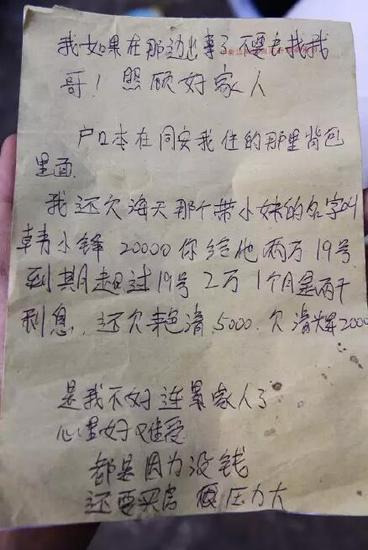 我如果在那边出事了不要去找我
哥！照顾好家人
户口本在同安我住的那里背包
里面
我还欠海天那个带小妹的名字叫
韩小锋 20000 你给他两万 19号
到期超过19号 2万 1个月是两千
利息 还欠艳清 5000. 欠清辉2000
是我不好 连累家人了
心里好难受
都是因为没钱
还要买房 压力大